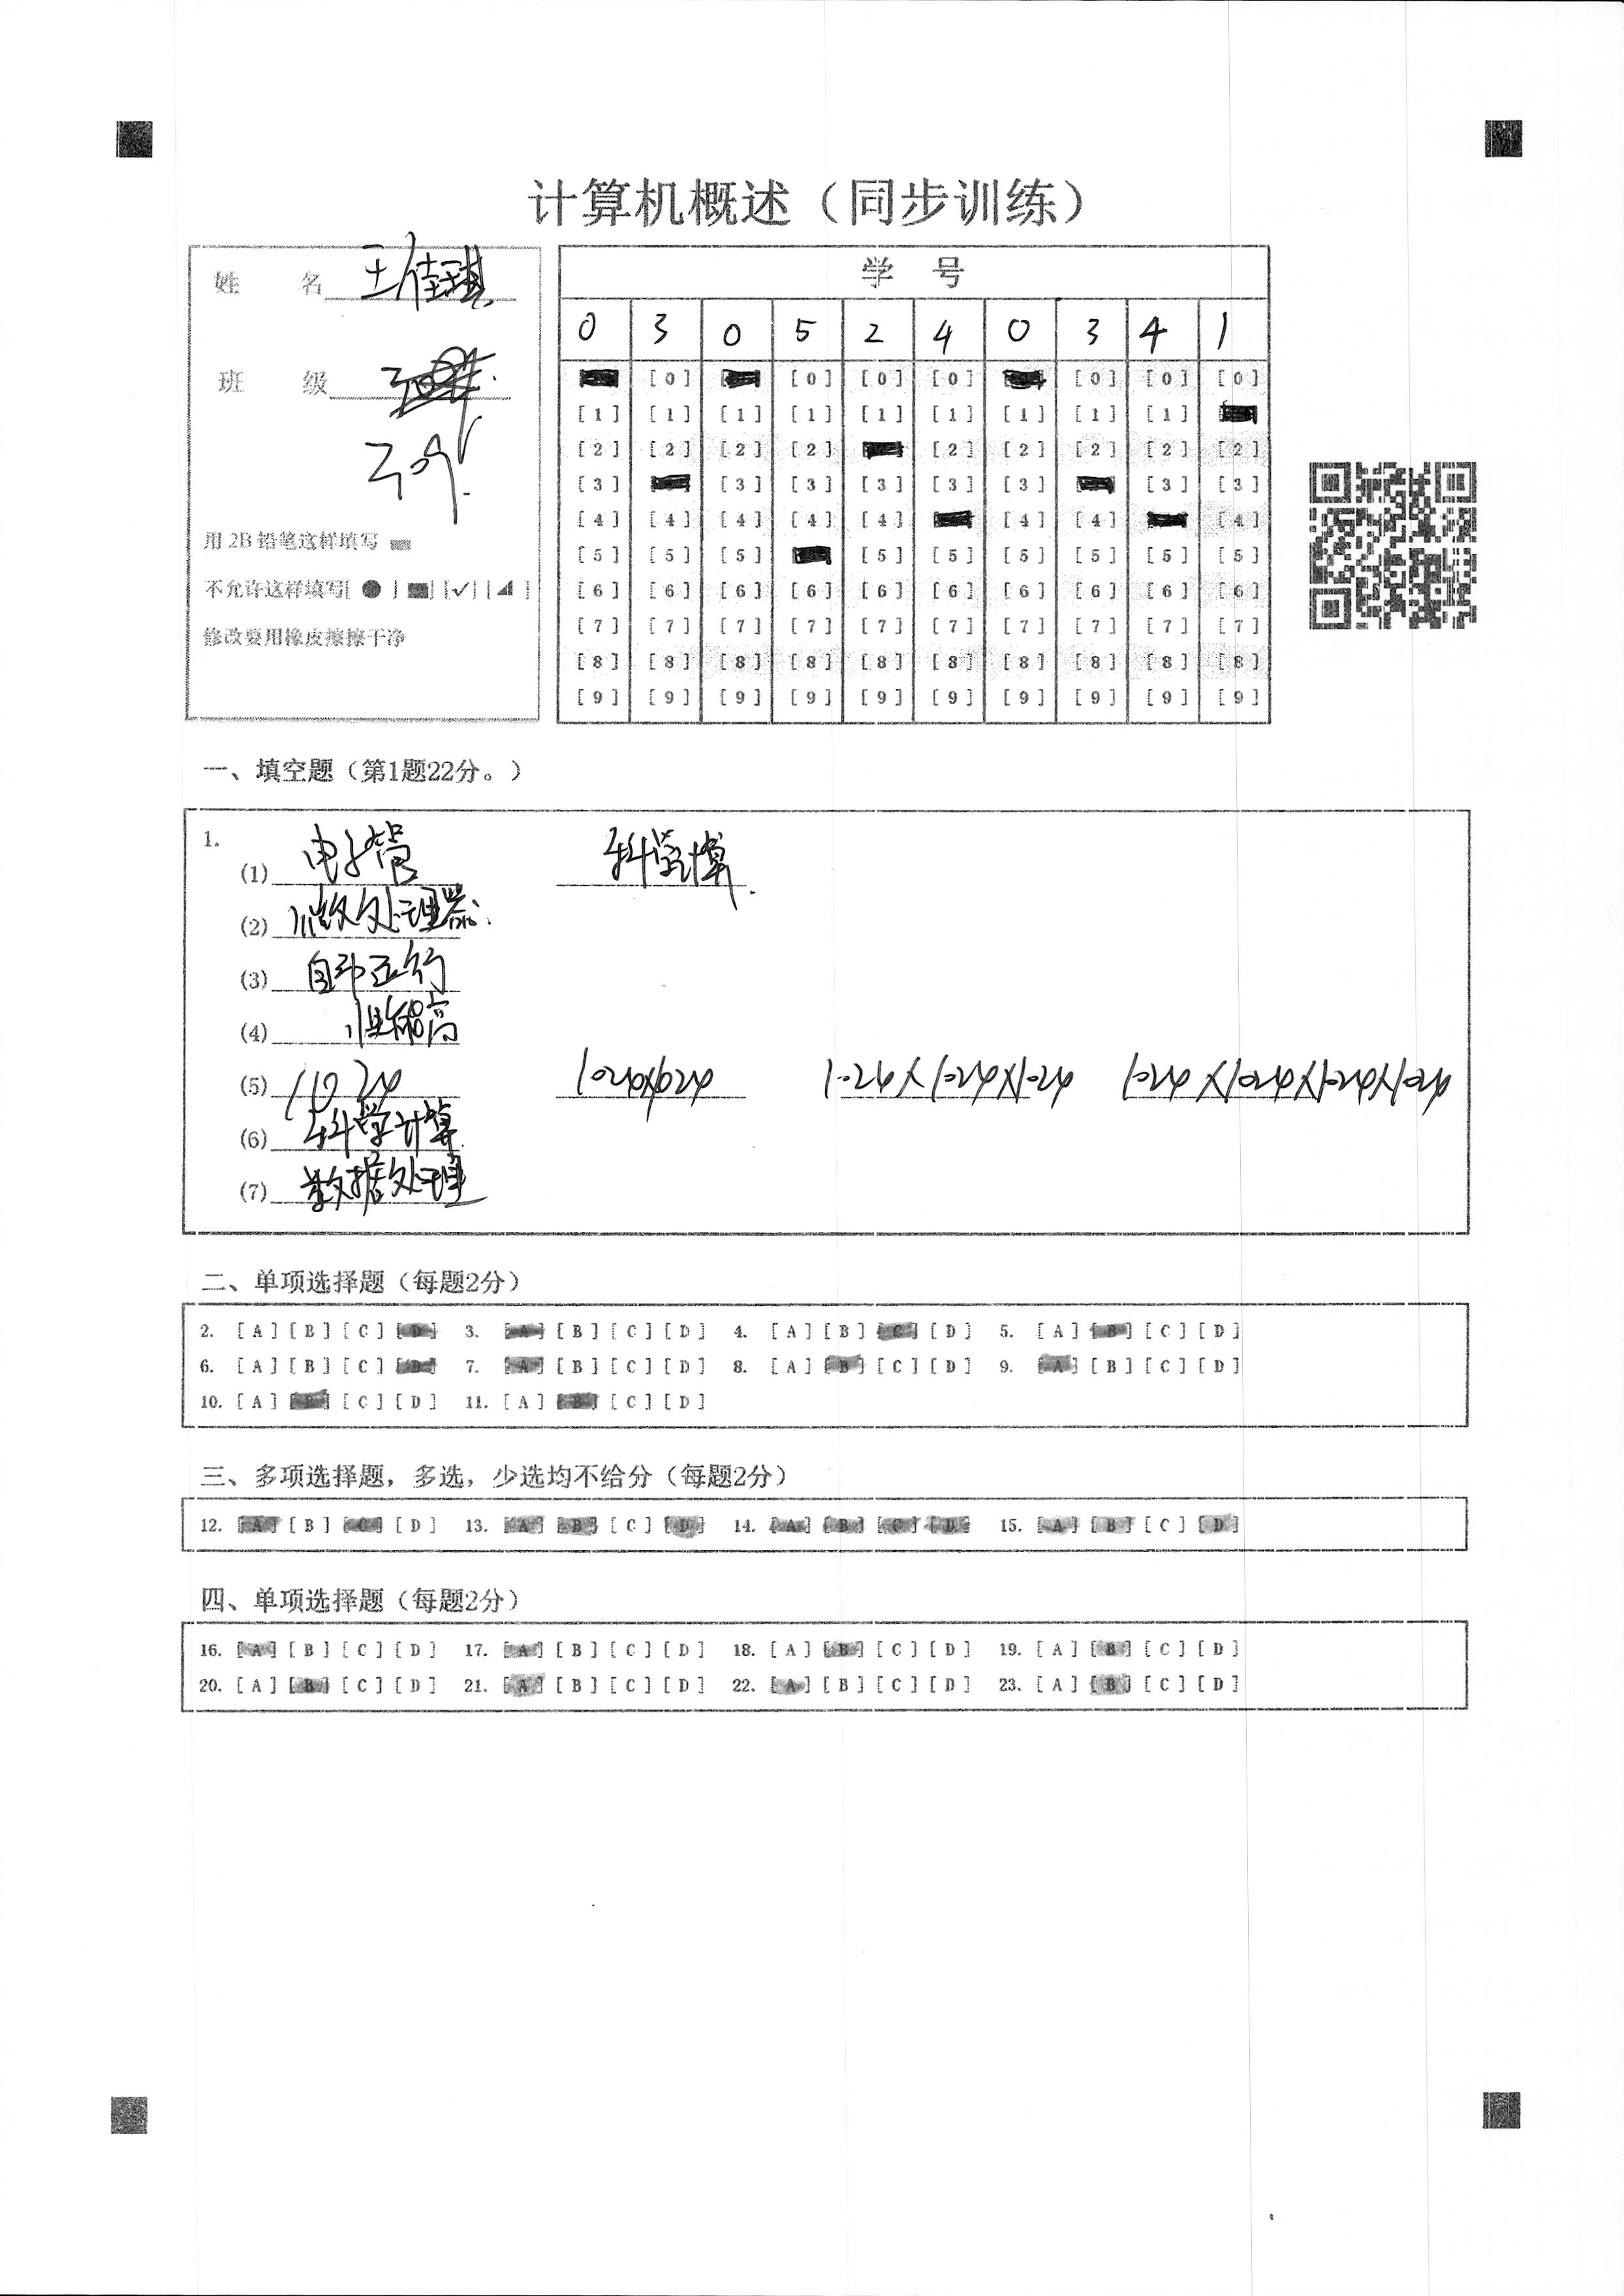 计算机概述（同步训练）
姓 名 王佳琪
班 级
用 2B 铅笔这样填写
不允许这样填写[ ● ] [■] [✓] [◢]
修改要用橡皮擦擦干净
学 号
0 3 0 5 2 4 0 3 4 1
[0] [0] [0] [0] [0] [0] [0]
[1] [1] [1] [1] [1] [1] [1] [1] [1]
[2] [2] [2] [2] [2] [2] [2] [2] [2]
[3] [3] [3] [3] [3] [3] [3] [3]
[4] [4] [4] [4] [4] [4] [4] [4]
[5] [5] [5] [5] [5] [5] [5] [5] [5]
[6] [6] [6] [6] [6] [6] [6] [6] [6] [6]
[7] [7] [7] [7] [7] [7] [7] [7] [7] [7]
[8] [8] [8] [8] [8] [8] [8] [8] [8] [8]
[9] [9] [9] [9] [9] [9] [9] [9] [9] [9]
一、填空题（第1题22分。）
1.
(1) 电子管 科学计算
(2) 微处理器
(3) 自动运行
(4) 性能高
(5) 1024 1024×1024 1024×1024×1024 1024×1024×1024×1024
(6) 科学计算
(7) 数据处理
二、单项选择题（每题2分）
2. [A] [B] [C] [D] 3. [A] [B] [C] [D] 4. [A] [B] [C] [D] 5. [A] [B] [C] [D]
6. [A] [B] [C] [D] 7. [A] [B] [C] [D] 8. [A] [B] [C] [D] 9. [A] [B] [C] [D]
10. [A] [B] [C] [D] 11. [A] [B] [C] [D]
三、多项选择题，多选，少选均不给分（每题2分）
12. [A] [B] [C] [D] 13. [A] [B] [C] [D] 14. [A] [B] [C] [D] 15. [A] [B] [C] [D]
四、单项选择题（每题2分）
16. [A] [B] [C] [D] 17. [A] [B] [C] [D] 18. [A] [B] [C] [D] 19. [A] [B] [C] [D]
20. [A] [B] [C] [D] 21. [A] [B] [C] [D] 22. [A] [B] [C] [D] 23. [A] [B] [C] [D]